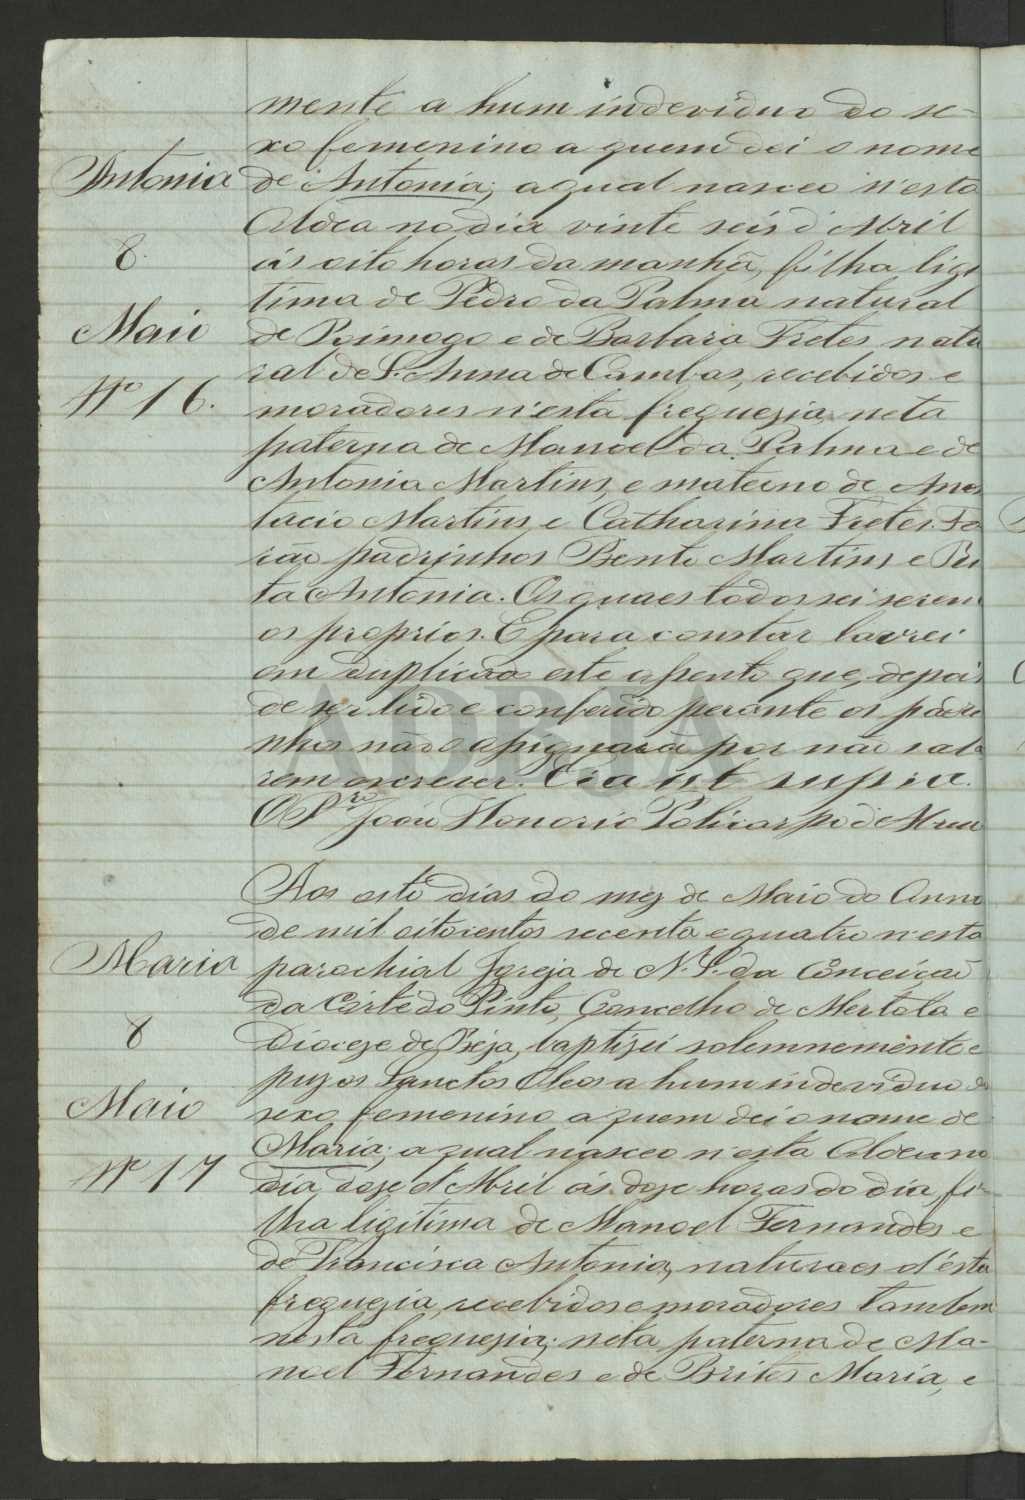 mente a hum individuo do se-
xo femenino a quem dei o nome
Antonia
de Antonia; a qual nasceo n'esta
Aldea no dia vinte seis d'Abril
8.
ás oito horas da manhã, filha ligi
tima de Pedro da Palma natural
Maio
de e de Barbara Fretes natu
ral de S. Anna de Cambas, recebidos e
Nº 16.
moradores n'esta freguezia, neta
paterna de Manoel da Palma e de
Antonia Martins, e materno de Anas
tacio Martins e Catharina Fretes. Fo
rão padrinhos Bento Martins e
ta Antonia. Os quaes todos sei serem
os proprios. E para constar lavrei
em duplicado este assento que, depois
de ser lido e conferido perante os padri
nhos não assignará por não sabe
rem escrever. Era ut supra.
O Pr.º João Honorio Policarpo d'Abreu
Aos oito dias do mez de Maio do Anno
de mil oitocentos secenta e quatro n'esta
Maria
parochial Igreja de N. S. da Conceiçaõ
da Corte do Pinto, Concelho de Mertola e
8
Dioceze de Beja, baptizei solemnemente e
puz os Sanctos Oleos a hum individuo do
Maio
sexo femenino a quem dei o nome de
Maria; a qual nasceo n'esta Aldea no
Nº 17
dia doze d'Abril ás doze horas do dia, fi-
lha ligitima de Manoel Fernandes e
de Francisca Antonia, naturaes d'esta
freguezia, recebidos e moradores tambem
nesta freguezia; neta paterna de Ma-
noel Fernandes e de Brites Maria, e
ADBJA